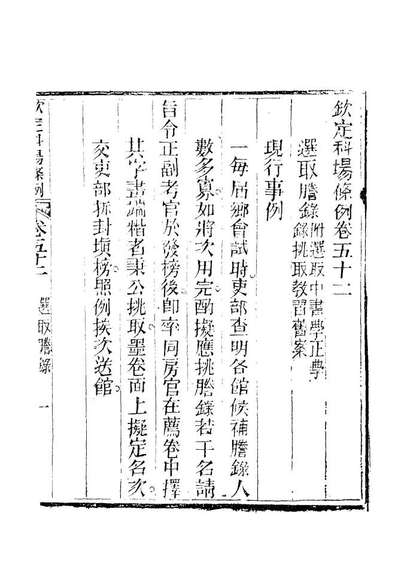 欽定科場條例卷五十二
選取謄錄附選取中書學正學
錄挑取教習舊案
現行事例
一每屆鄉會試時吏部查明各館候補謄錄人
數多寡如將次用完酌擬應挑謄錄若干名請
旨令正副考官於發榜後卽率同房官在薦卷中擇
其字畫端楷者秉公挑取墨卷面上擬定名次
交吏部拆封塡榜照例挨次送館
欽定科場條例 卷五十二 選取謄錄 一